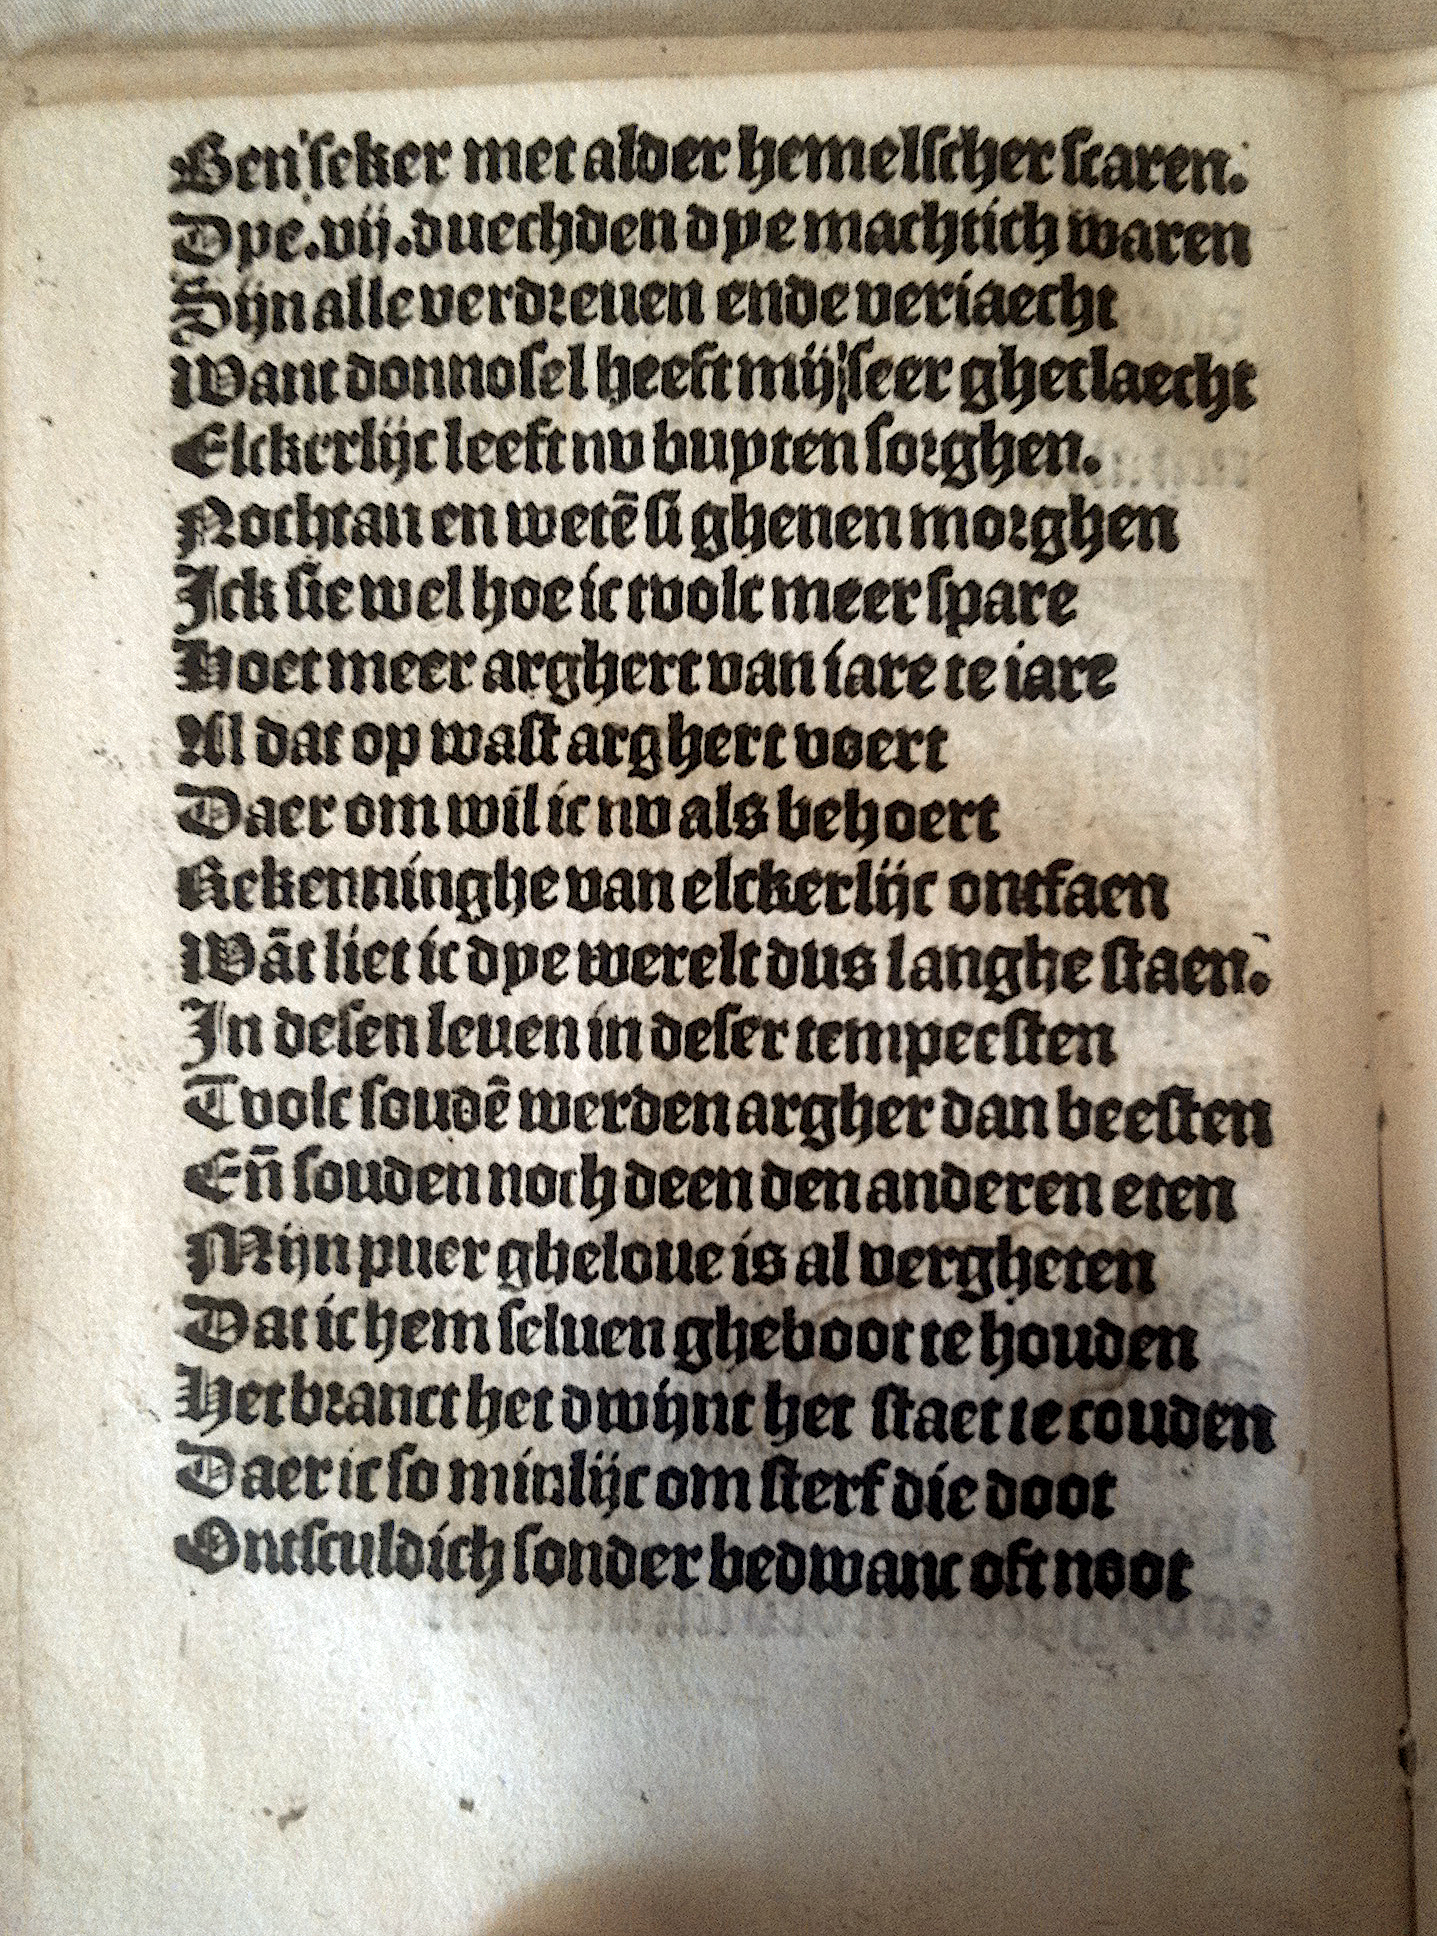 Ben seker met alder hemelscher scaren.
Dye.vij.duechden dye machtich waren
Sijn alle verdreuen ende veriaecht
Want donnosel heeft mij seer gheclaecht
Elckerlijc leeft nv buyten sorghen.
Nochtan en wetē si ghenen morghen
Ick sie wel hoe ic tvolc meer spare
Hoet meer arghert van iare te iare
Al dat op wast arghert voert
Daer om wil ic nv als behoert
Rekenninghe van elckerlijc ontfaen
Wāt liet ic dye werelt dus langhe staen.
In desen leuen in deser tempeesten
Tvolc soudē werden argher dan beesten
Eñ souden noch deen den anderen eten
Mijn puer gheloue is al vergheten
Dat ic hem seluen gheboot te houden
Het branct het dwijnt het staet te couden
Daer ic so minlijc om sterf die doot
Ontsculdich sonder bedwanc oft noot